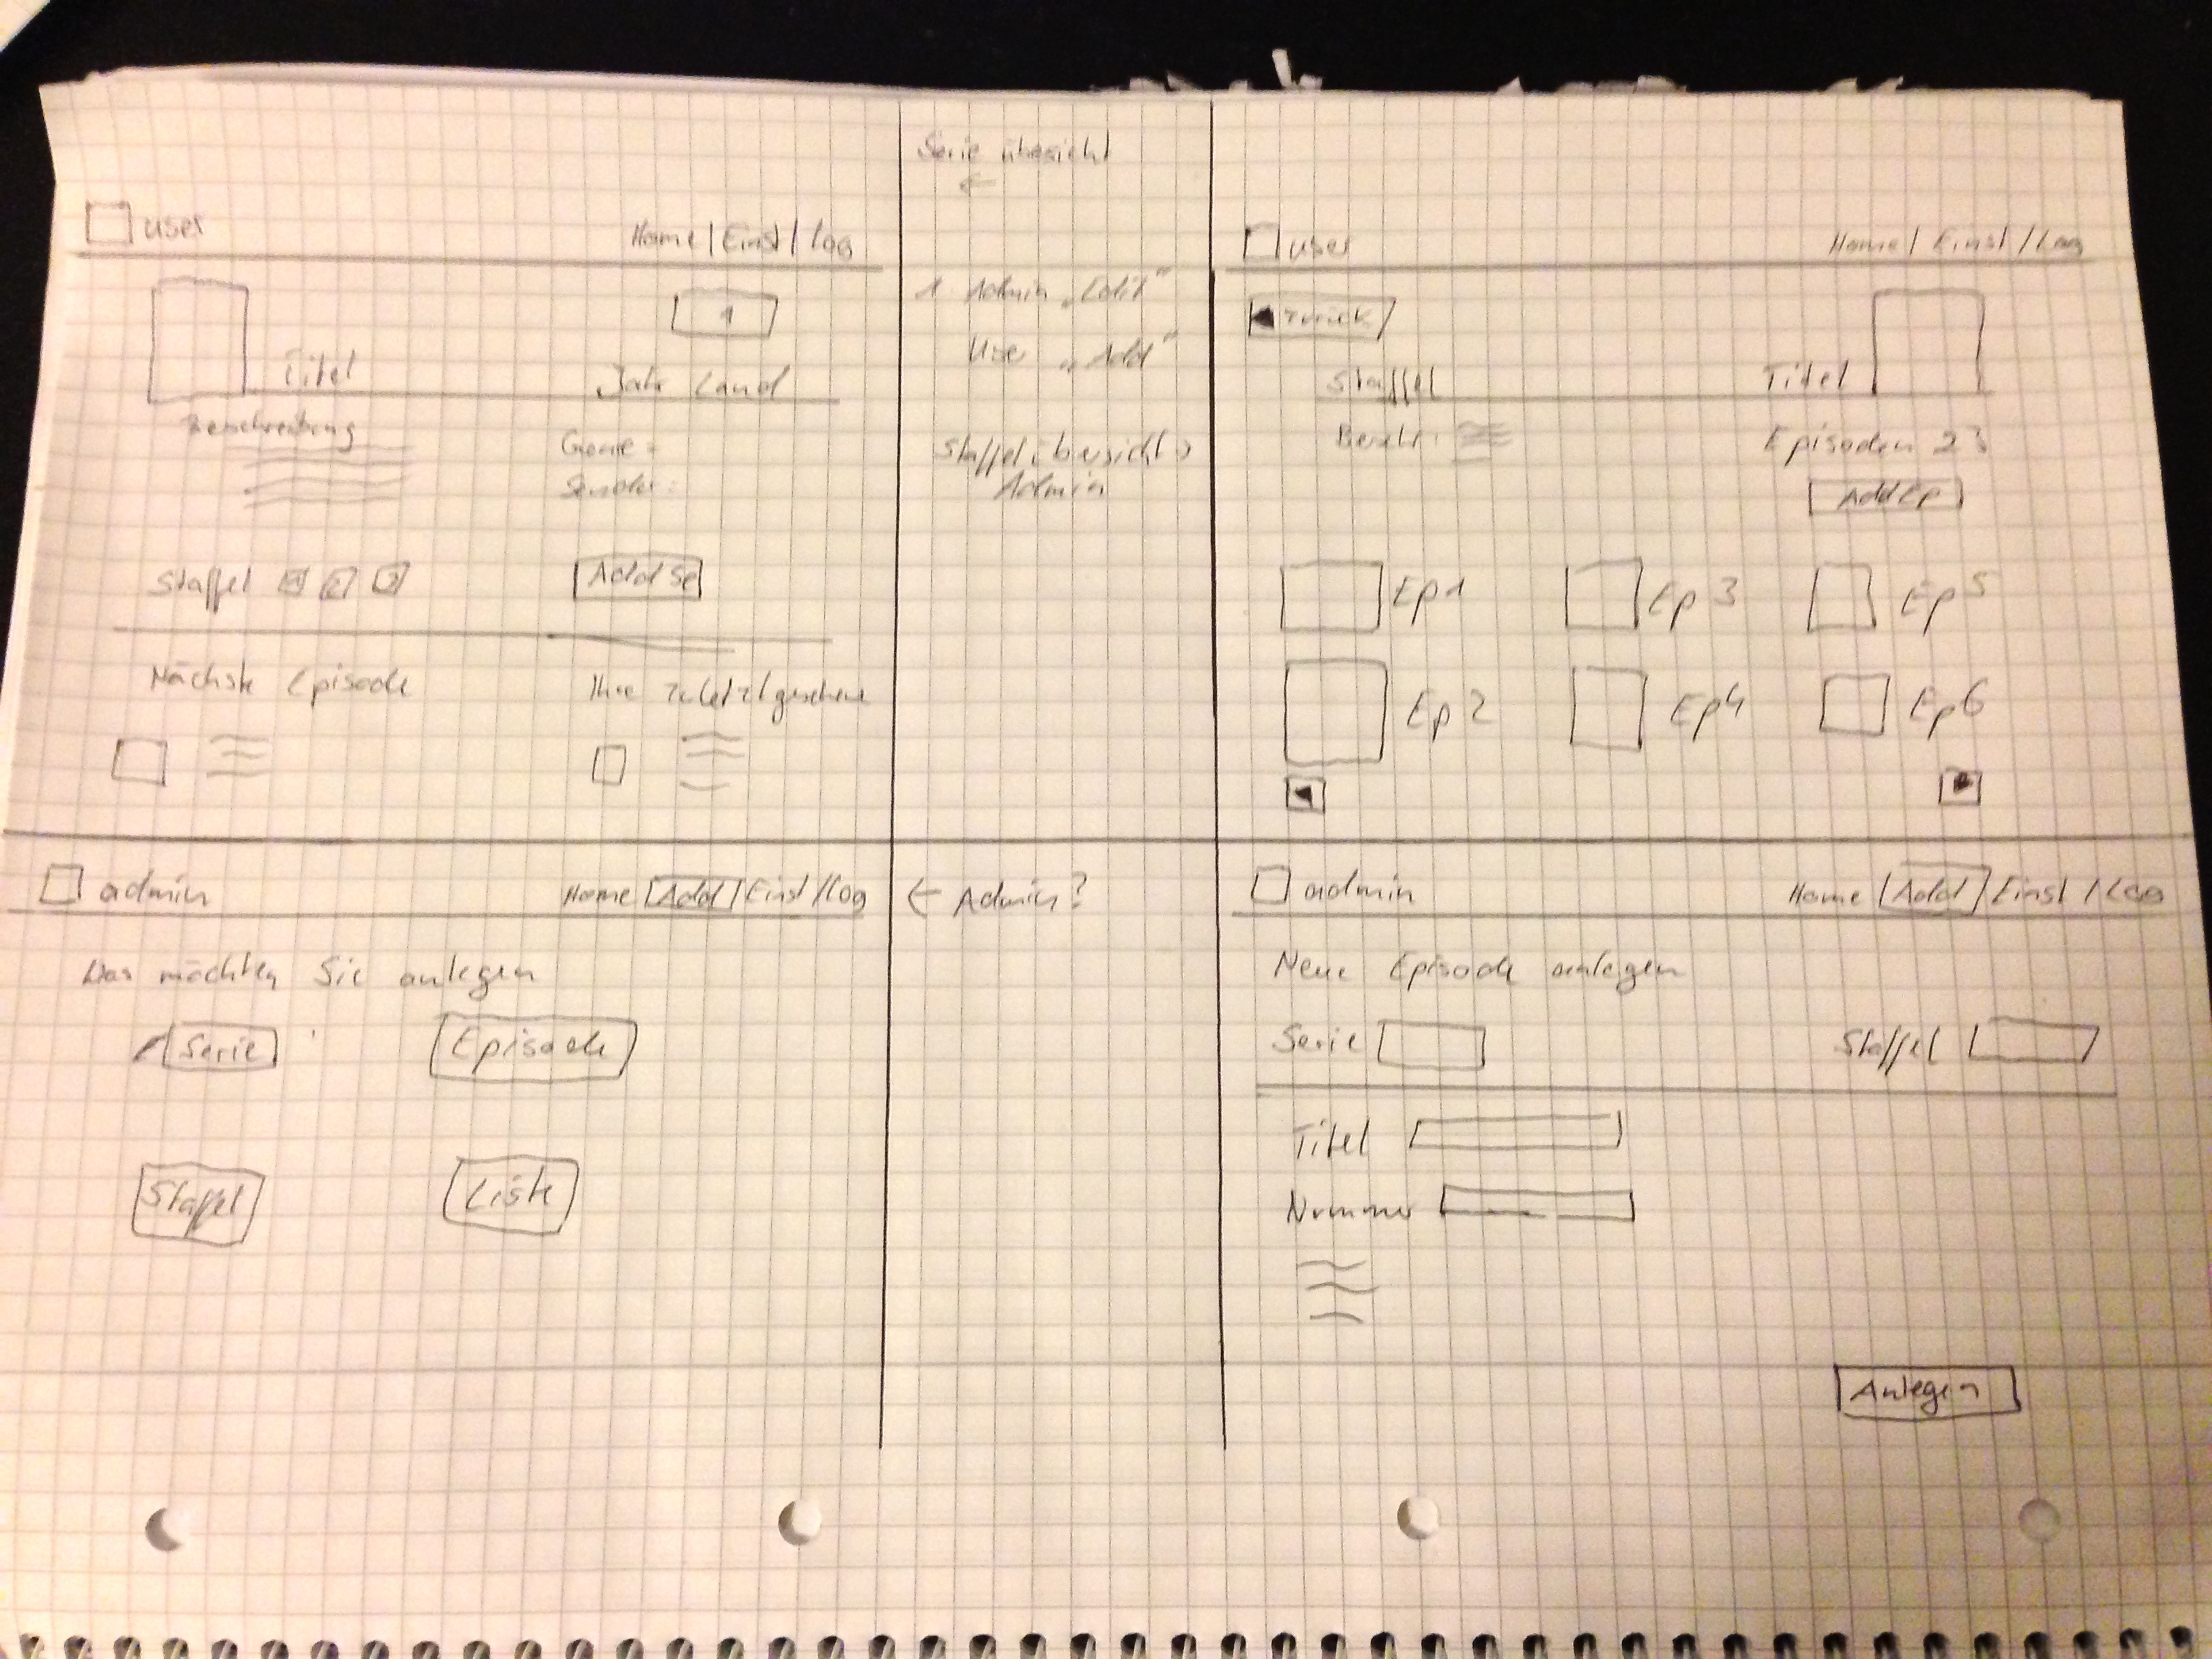 user Home | Einst / Log
1
Titel Jahr Land
Beschreibung
Genre:
Sender:
Staffel 1 2 3 Add Se
Nächste Episode Ihre zuletzt gesehene
Serie übersicht
←
1 Admin „Edit“
User „Add“
Staffelübersicht >
Admin
user Home | Einst / Log
◀ zurück
Staffel Titel
Beschr: Episoden 23
Add Ep
Ep 1 Ep 3 Ep 5
Ep 2 Ep 4 Ep 6
◀
admin Home | Add | Einst / Log
Das möchten Sie anlegen
Serie Episode
Staffel Liste
← Admin?
admin Home | Add | Einst / Log
Neue Episode anlegen
Serie Staffel
Titel
Nummer
Anlegen